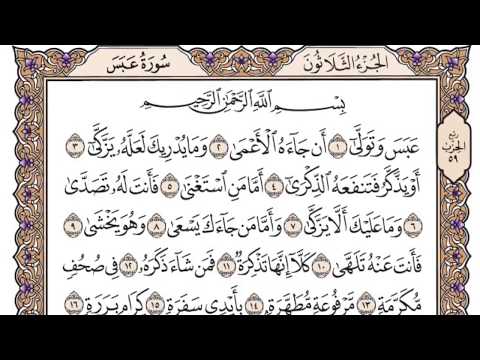 الجزء الثلاثون
سورة عبس
بِسْمِ ٱللَّهِ ٱلرَّحْمَٰنِ ٱلرَّحِيمِ
ربع
الحزب
٥٩
عَبَسَ وَتَوَلَّىٰٓ ١ أَن جَآءَهُ ٱلْأَعْمَىٰ ٢ وَمَا يُدْرِيكَ لَعَلَّهُۥ يَزَّكَّىٰٓ ٣
أَوْ يَذَّكَّرُ فَتَنفَعَهُ ٱلذِّكْرَىٰٓ ٤ أَمَّا مَنِ ٱسْتَغْنَىٰ ٥ فَأَنتَ لَهُۥ تَصَدَّىٰ
٦ وَمَا عَلَيْكَ أَلَّا يَزَّكَّىٰ ٧ وَأَمَّا مَن جَآءَكَ يَسْعَىٰ ٨ وَهُوَ يَخْشَىٰ ٩
فَأَنتَ عَنْهُ تَلَهَّىٰ ١٠ كَلَّآ إِنَّهَا تَذْكِرَةٌ ١١ فَمَن شَآءَ ذَكَرَهُۥ ١٢ فِي صُحُفٍ
مُّكَرَّمَةٍ ١٣ مَّرْفُوعَةٍ مُّطَهَّرَةٍۭ ١٤ بِأَيْدِي سَفَرَةٍ ١٥ كِرَامٍۭ بَرَرَةٍ ١٦